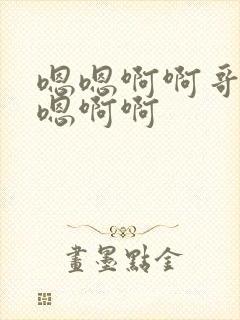 嗯嗯啊啊哥
嗯啊啊
畫墨點金